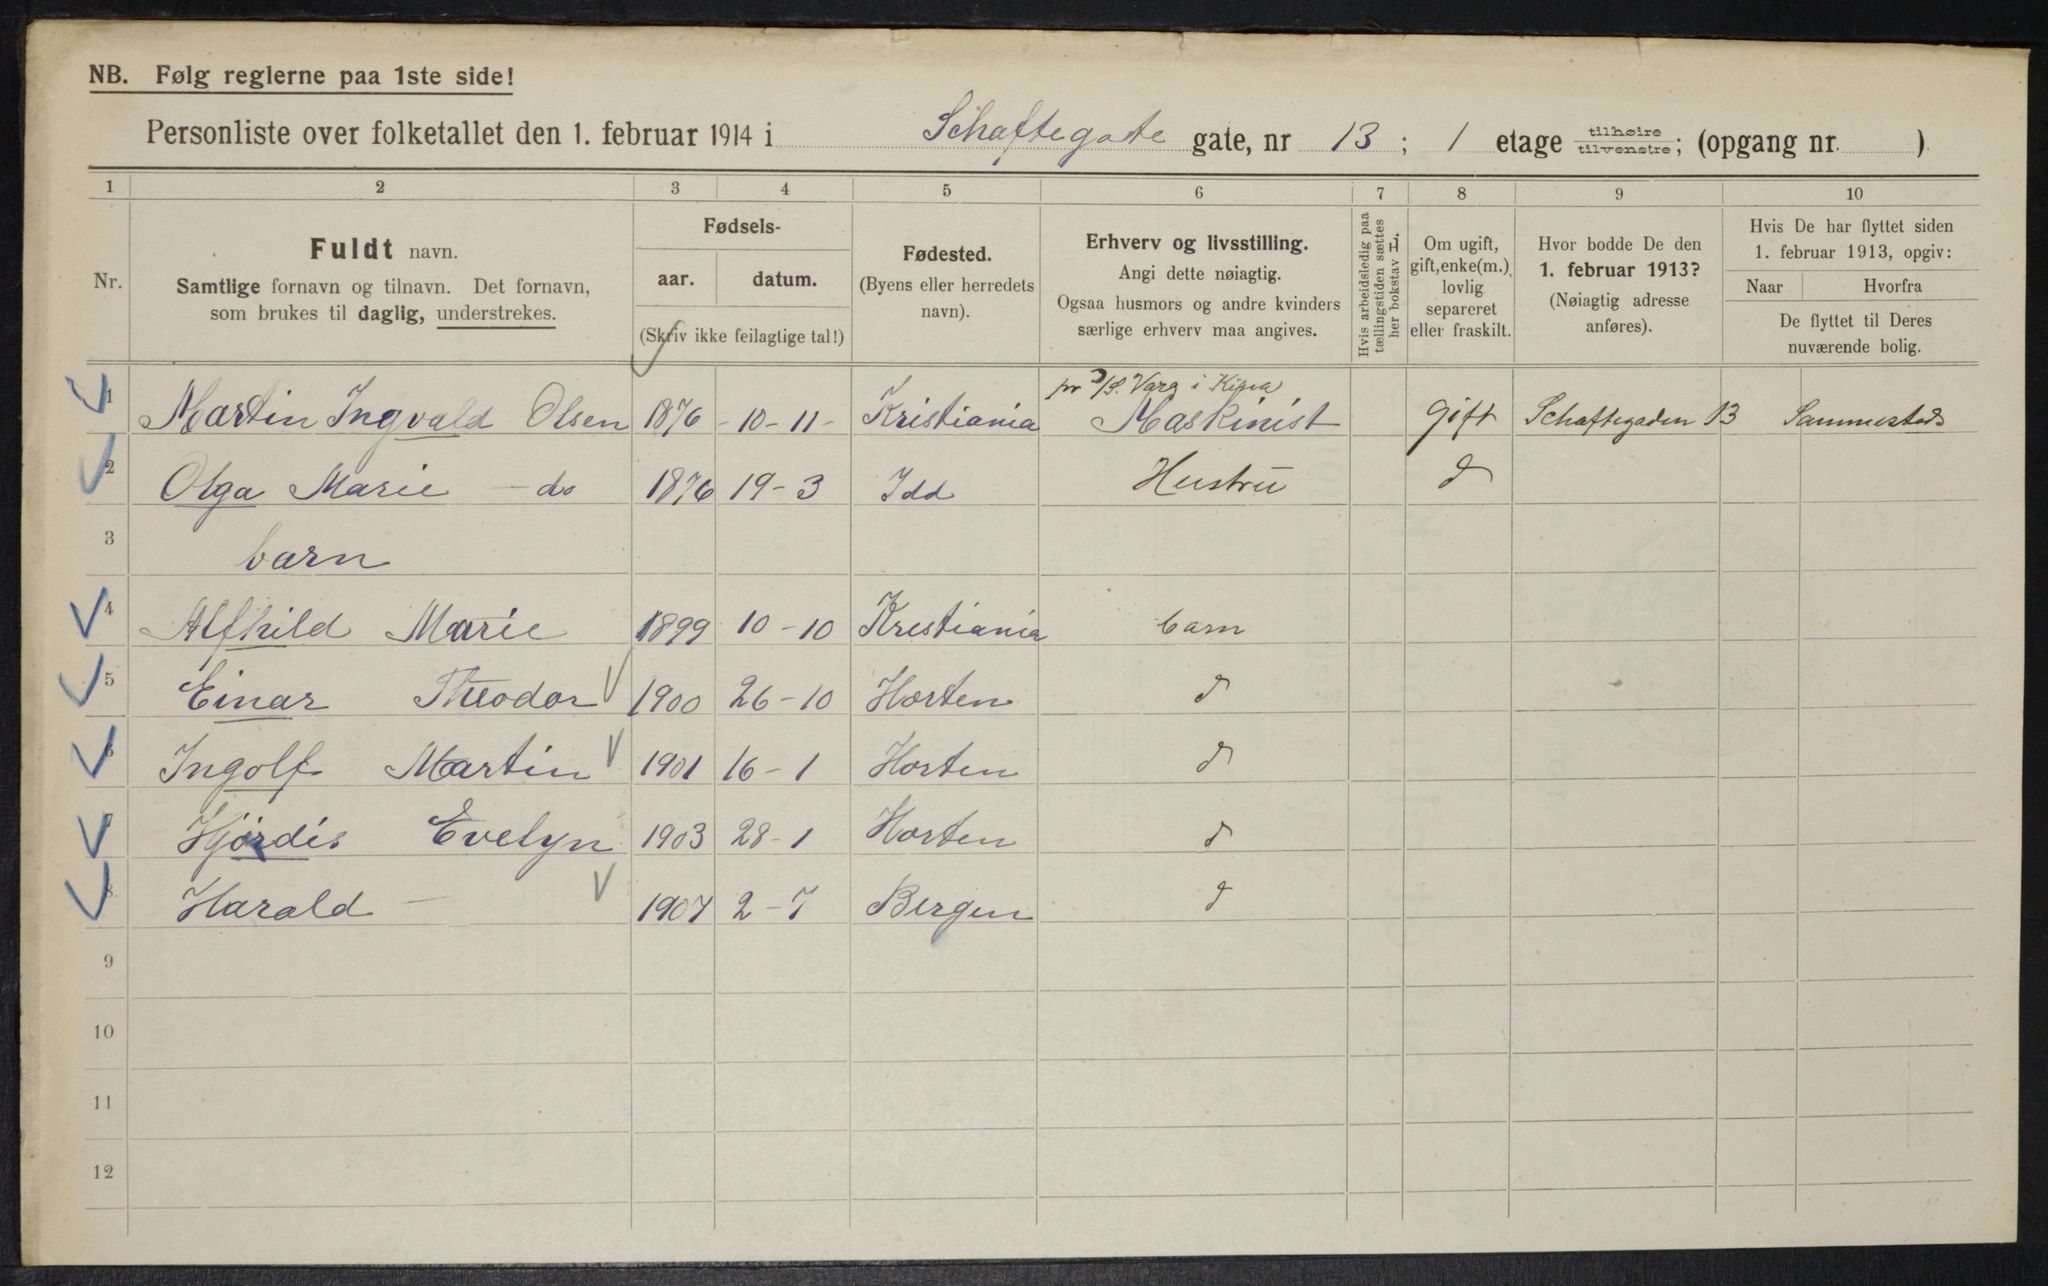 NB. Følg reglerne paa 1ste side!
Personliste over folketallet den 1. februar 1914 i Schaftegate gate, nr 13; 1 etage tilhøire tilvenstre; (opgang nr. )
1 2 3 4 5 6 7 8 9 10
Nr.
Fuldt navn.
Samtlige fornavn og tilnavn. Det fornavn,
som brukes til daglig, understrekes.
Fødsels-
aar. datum.
(Skriv ikke feilagtige tal!)
Fødested.
(Byens eller herredets
navn).
Erhverv og livsstilling.
Angi dette nøiagtig.
Ogsaa husmors og andre kvinders
særlige erhverv maa angives.
Hvis arbeidsledig paa
tællingstiden sættes
her bokstav L.
Om ugift,
gift, enke(m.),
lovlig
separeret
eller fraskilt.
Hvor bodde De den
1. februar 1913?
(Nøiagtig adresse
anføres).
Hvis De har flyttet siden
1. februar 1913, opgiv:
Naar Hvorfra
De flyttet til Deres
nuværende bolig.
S/S. Varg i Kina
1 Martin Ingvald Olsen 1876 - 10 - 11 - Kristiania Maskinist gift Schaftegaden 13 Sammesteds
2 Olga Marie - do 1876 19 - 3 Idd Hustru d
3 barn
4 Alfhild Marie 1899 10 - 10 Krestiania barn
5 Einar Theodor 1900 26 - 10 Horten d
6 Ingolf Martin 1901 16 - 1 Horten d
7 Hjördis Evelyn 1903 28 - 1 Horten d
8 Harald - 1907 2 - 7 Bergen d
9
10
11
12